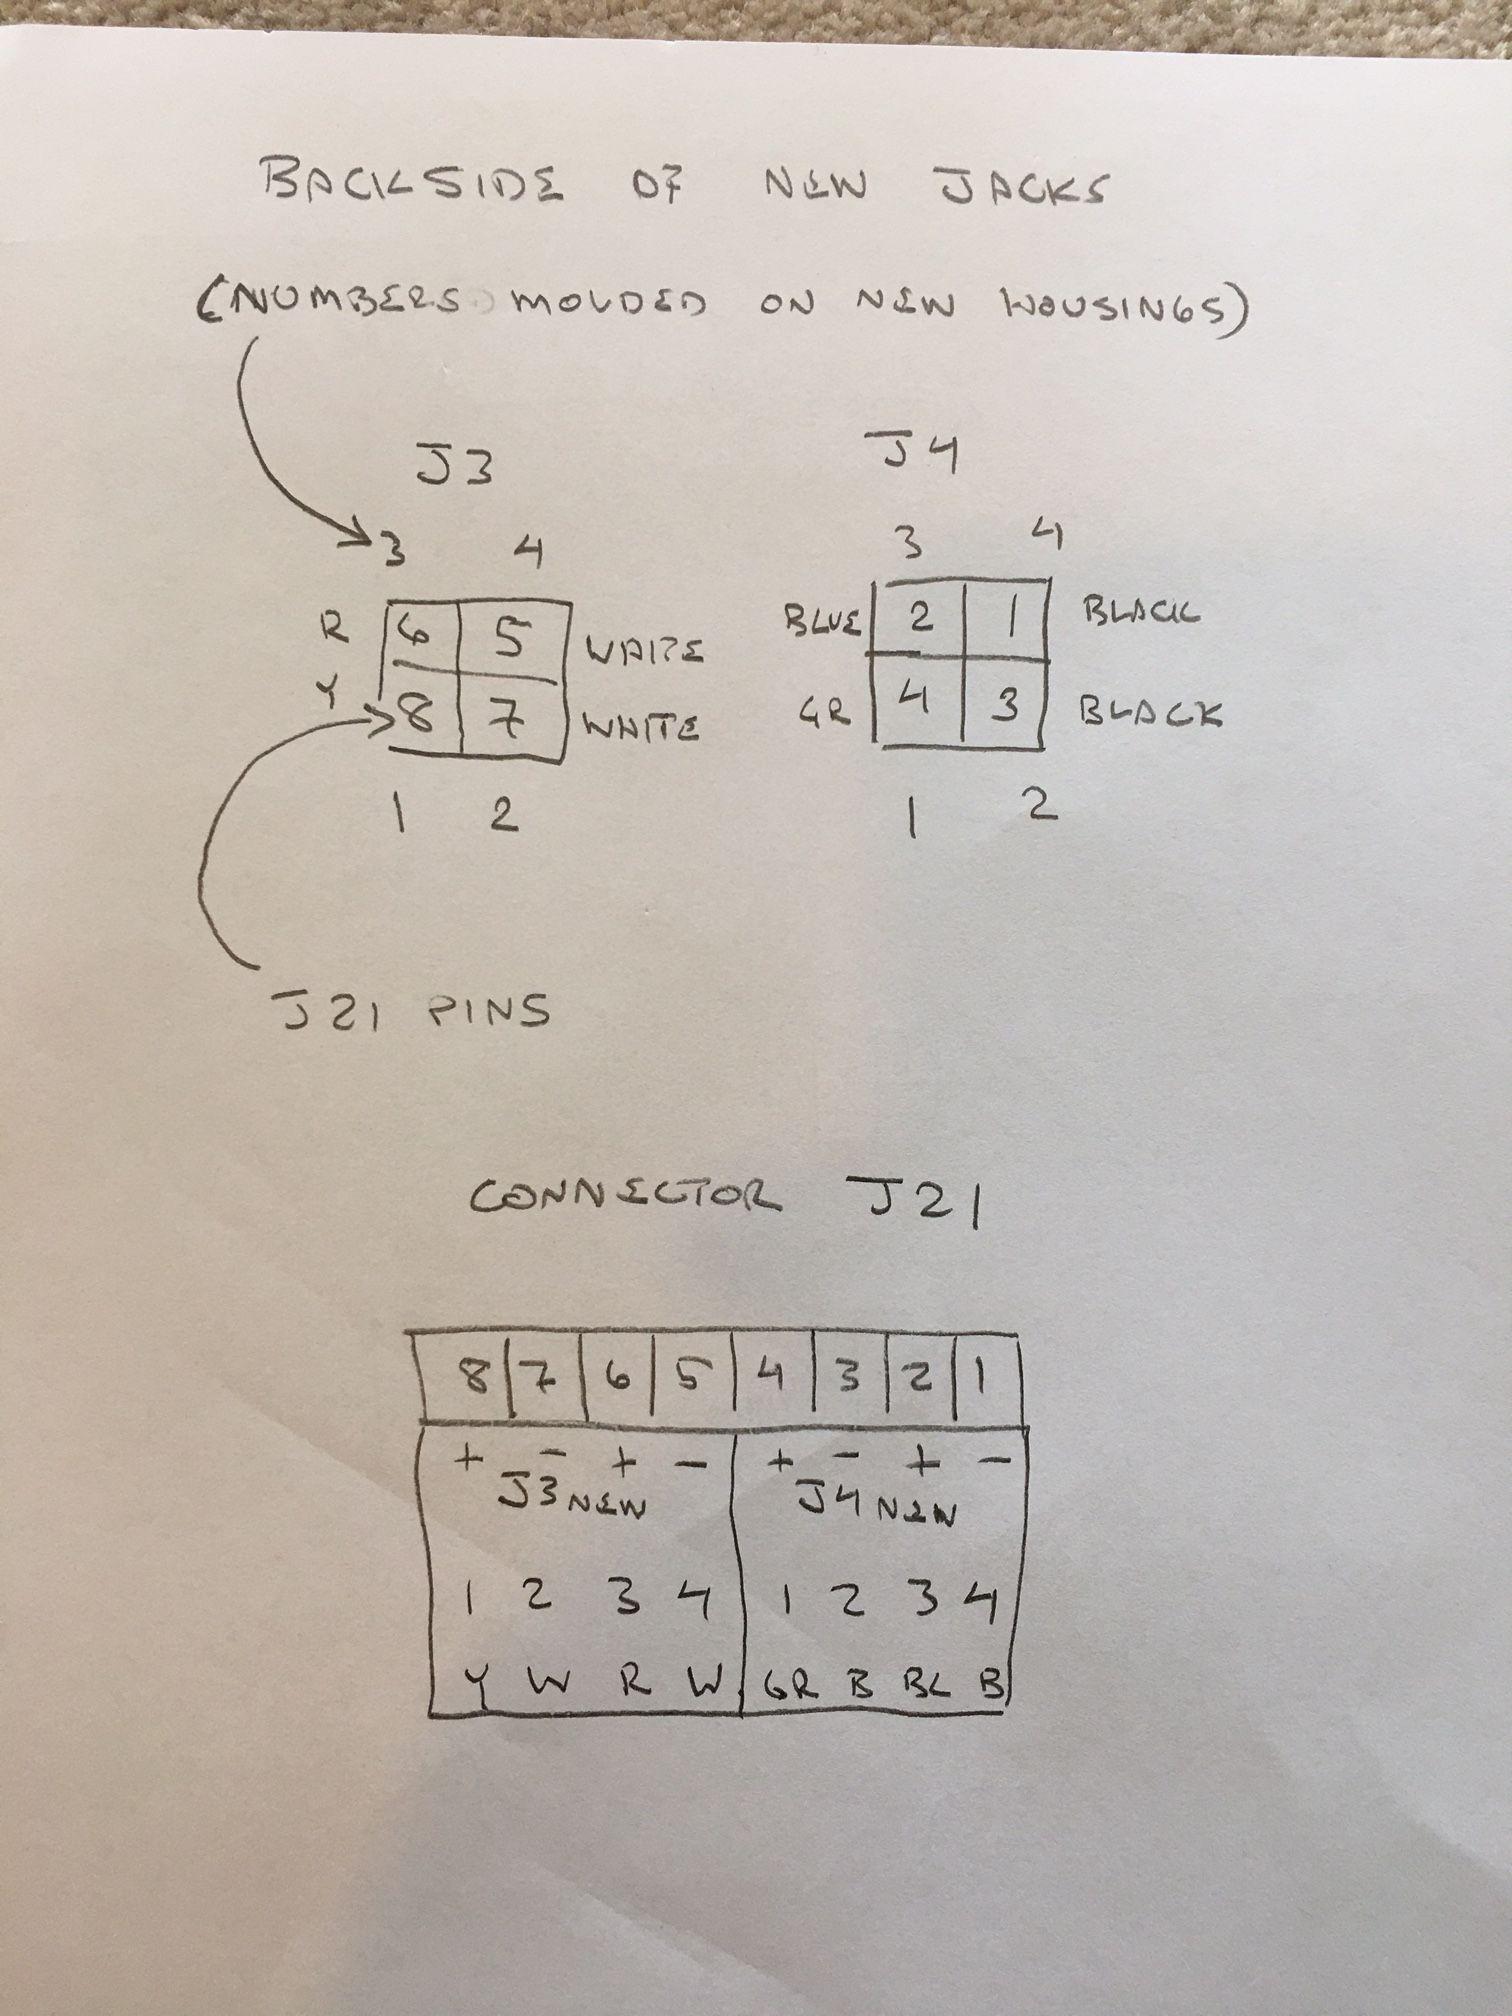 BACKSIDE OF NEW JACKS
(NUMBERS MOLDED ON NEW HOUSINGS)
J3 J4
3 4 3 4
R 6 5 WHITE BLUE 2 1 BLACK
Y 8 7 WHITE GR 4 3 BLACK
1 2 1 2
J21 PINS
CONNECTOR J21
8 7 6 5 4 3 2 1
+ - + - + - + -
J3 NEW J4 NEW
1 2 3 4 1 2 3 4
Y W R W GR B BL B